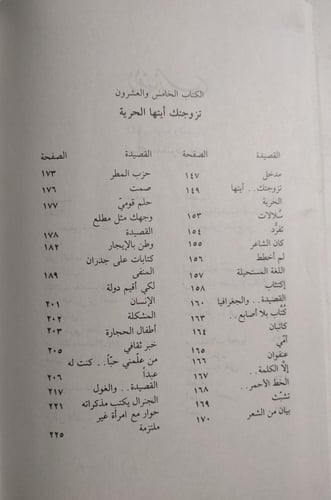 الكتاب الخامس والعشرون
تزوجتك أيتها الحرية
القصيدة الصفحة
مدخل ١٤٧
تزوجتك.. أيتها ١٤٩
الحرية
سُلالات ١٥٣
تفرُّد ١٥٤
كان الشاعر ١٥٥
لم أخطط ١٥٦
اللغة المستحيلة ١٥٧
إكتئاب ١٥٨
القصيدة.. والجغرافيا ١٦٠
كُتّاب بلا أصابع.. ١٦٣
كاتبان ١٦٤
أمّي ١٦٥
عنفوان ١٦٦
إلّا الكلمة.. ١٦٧
الخط الأحمر.. ١٦٨
تشبّث ١٦٩
بيان من الشعر ١٧٠
القصيدة الصفحة
حزب المطر ١٧٣
صمت ١٧٦
حلم قوميّ ١٧٧
وجهك مثل مطلع
القصيدة ١٧٨
وطن بالإيجار ١٨٢
كتابات على جدران
المنفى ١٨٩
لكي أقيم دولة
الإنسان ٢٠١
المشكلة ٢٠٢
أطفال الحجارة ٢٠٣
خبر ثقافي ٢٠٥
من علّمني حبّاً.. كنت له
عبداً ٢٠٦
القصيدة.. والغول ٢١٧
الجنرال يكتب مذكراته ٢٢١
حوار مع امرأة غير
ملتزمة ٢٢٥